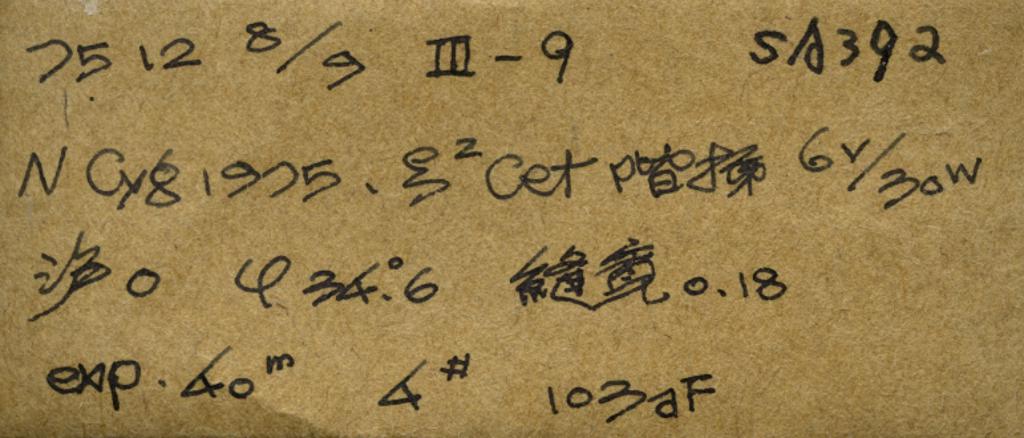 7512 8/9 III-9 SA392
N Cyg 1975、ξ² Cet 阶梯 6V/30W
沪0 φ34°.6 缝宽0.18
exp. 40ᵐ 4# 103aF